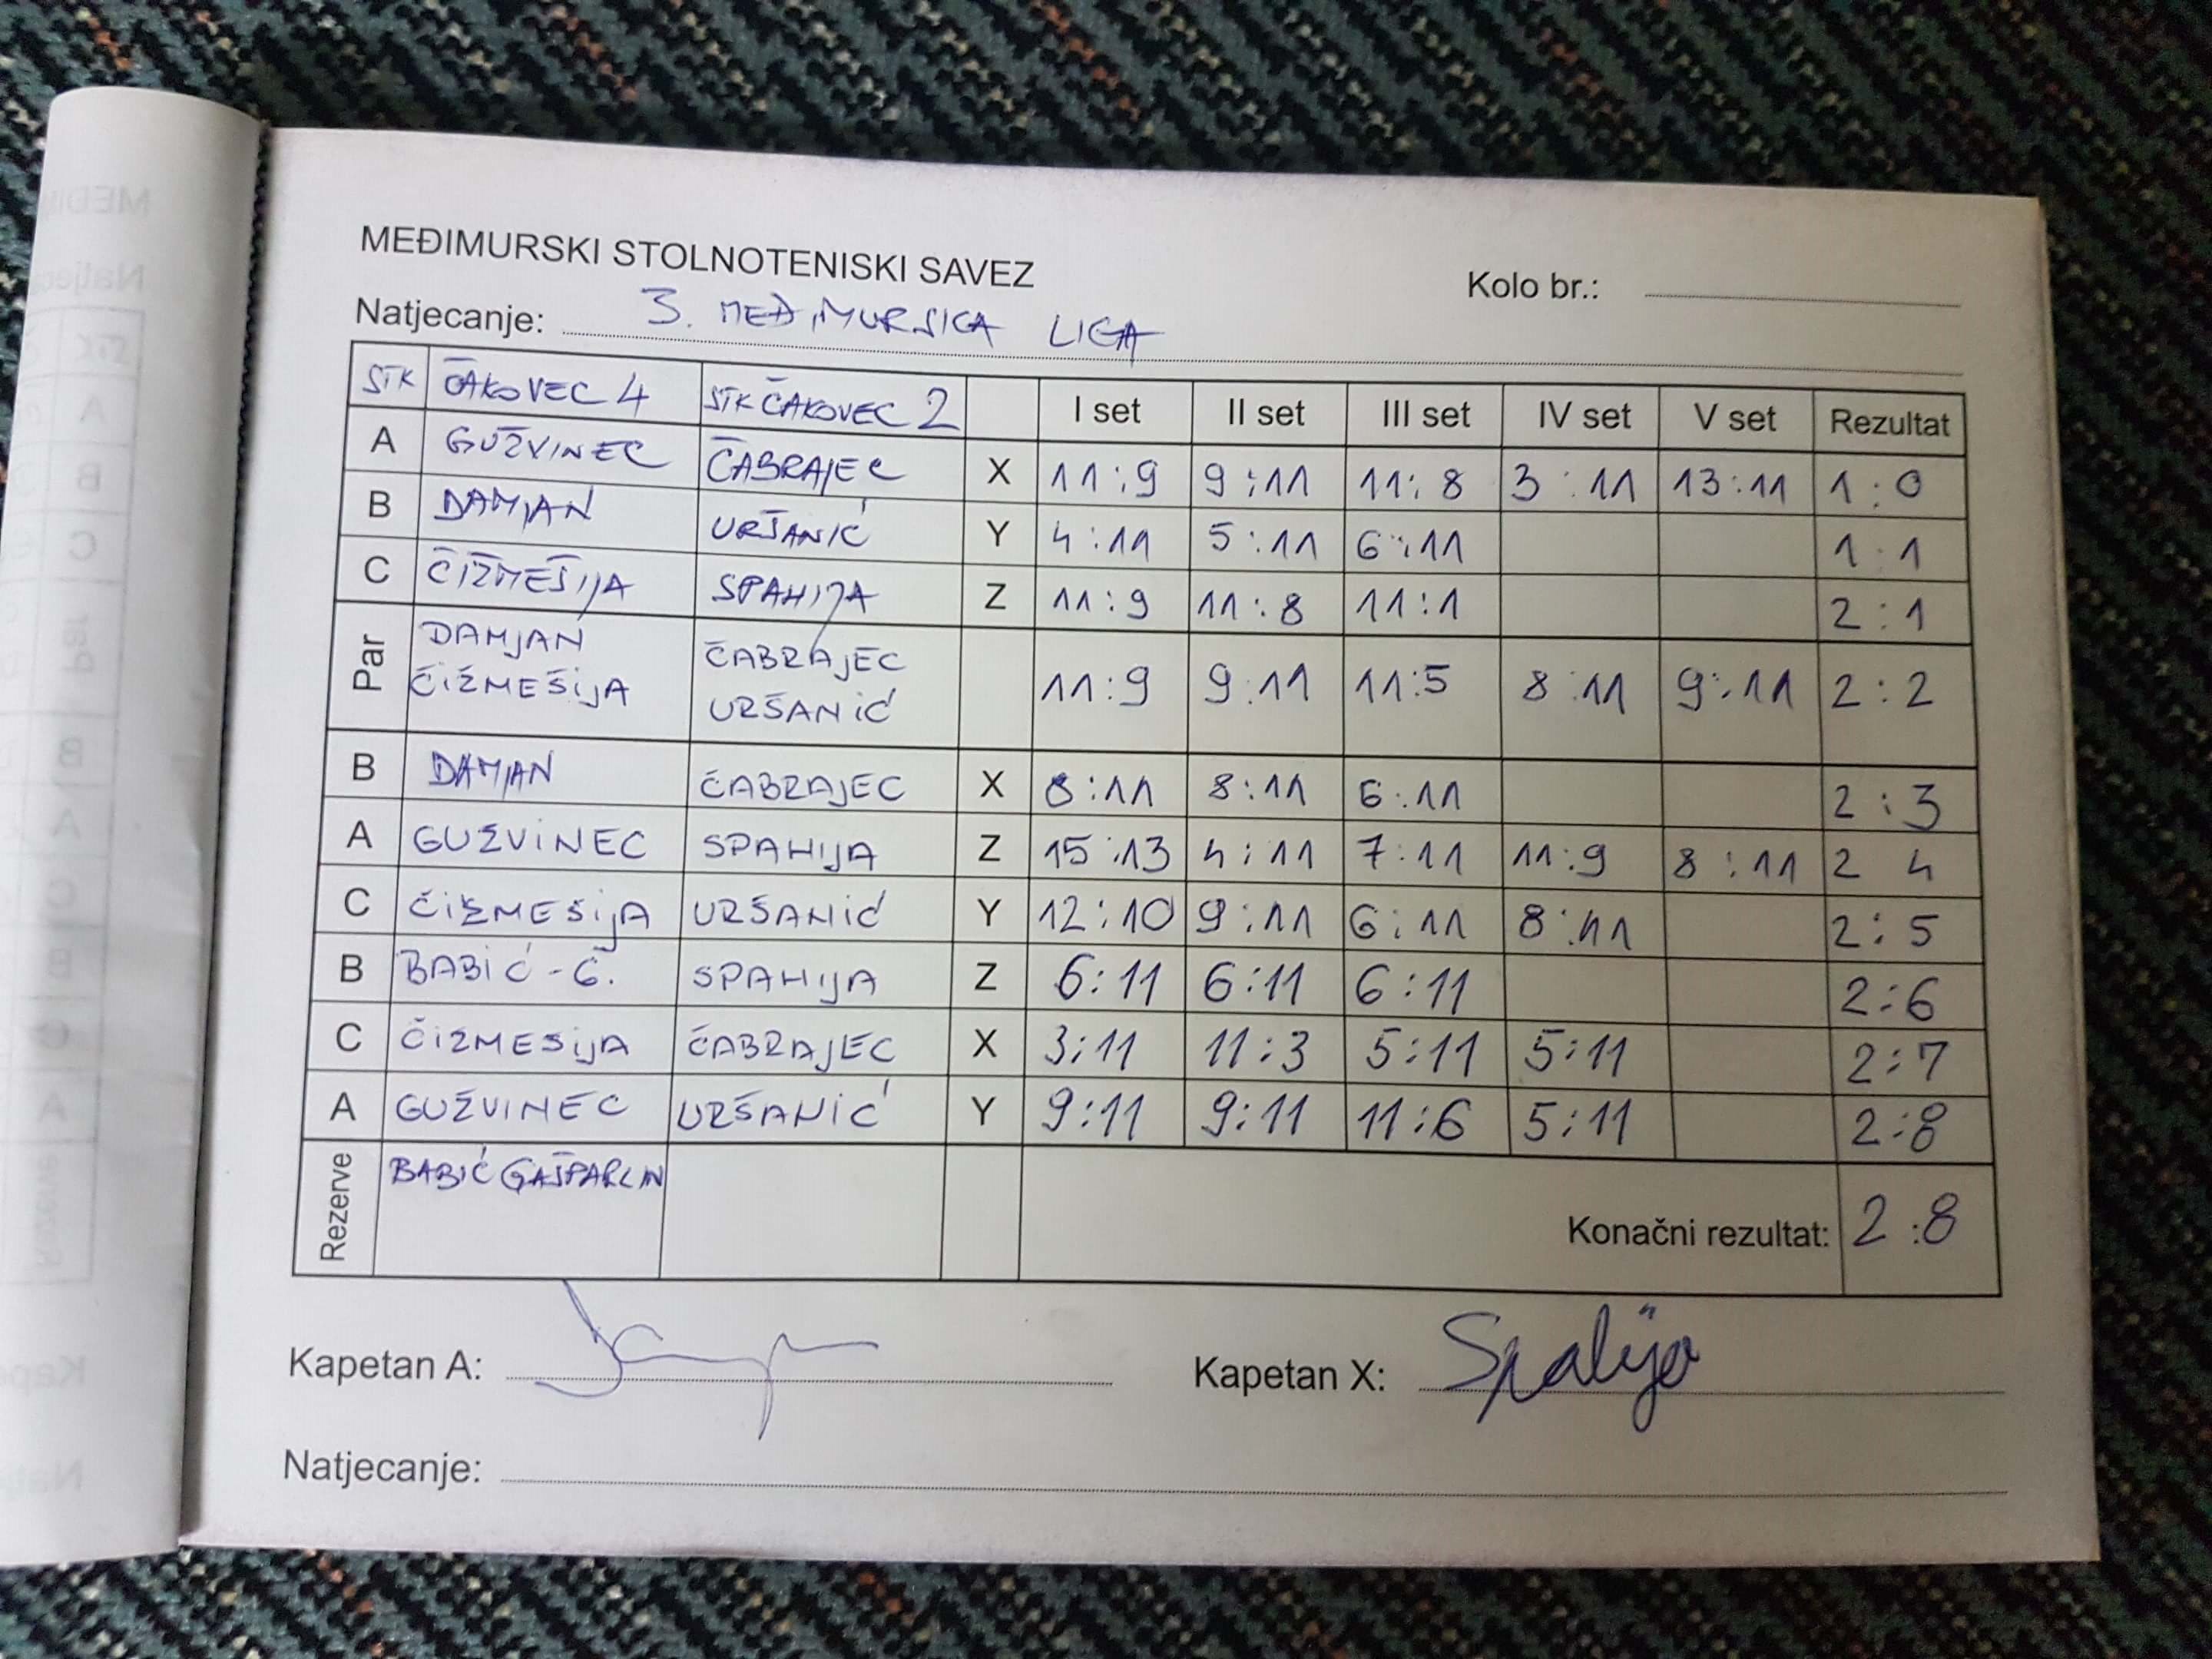 MEĐIMURSKI STOLNOTENISKI SAVEZ
Kolo br.:
Natjecanje: 3. MEĐIMURSKA LIGA
STK ČAKOVEC 4 STK ČAKOVEC 2 I set II set III set IV set V set Rezultat
A GUŽVINEC ČABRAJEC X 11:9 9:11 11:8 3:11 13:11 1:0
B DAMJAN URŠANIĆ Y 4:11 5:11 6:11 1:1
C ČIŽMEŠIJA SPAHIJA Z 11:9 11:8 11:1 2:1
Par DAMJAN ČIŽMEŠIJA ČABRAJEC URŠANIĆ 11:9 9:11 11:5 8:11 9:11 2:2
B DAMJAN ČABRAJEC X 8:11 8:11 6:11 2:3
A GUŽVINEC SPAHIJA Z 15:13 4:11 7:11 11:9 8:11 2 4
C ČIŽMEŠIJA URŠANIĆ Y 12:10 9:11 6:11 8:11 2:5
B BABIĆ-G. SPAHIJA Z 6:11 6:11 6:11 2:6
C ČIŽMEŠIJA ČABRAJEC X 3:11 11:3 5:11 5:11 2:7
A GUŽVINEC URŠANIĆ Y 9:11 9:11 11:6 5:11 2:8
Rezerve BABIĆ GAŠPARLIN
Konačni rezultat: 2:8
Kapetan A:
Kapetan X: Spahija
Natjecanje: